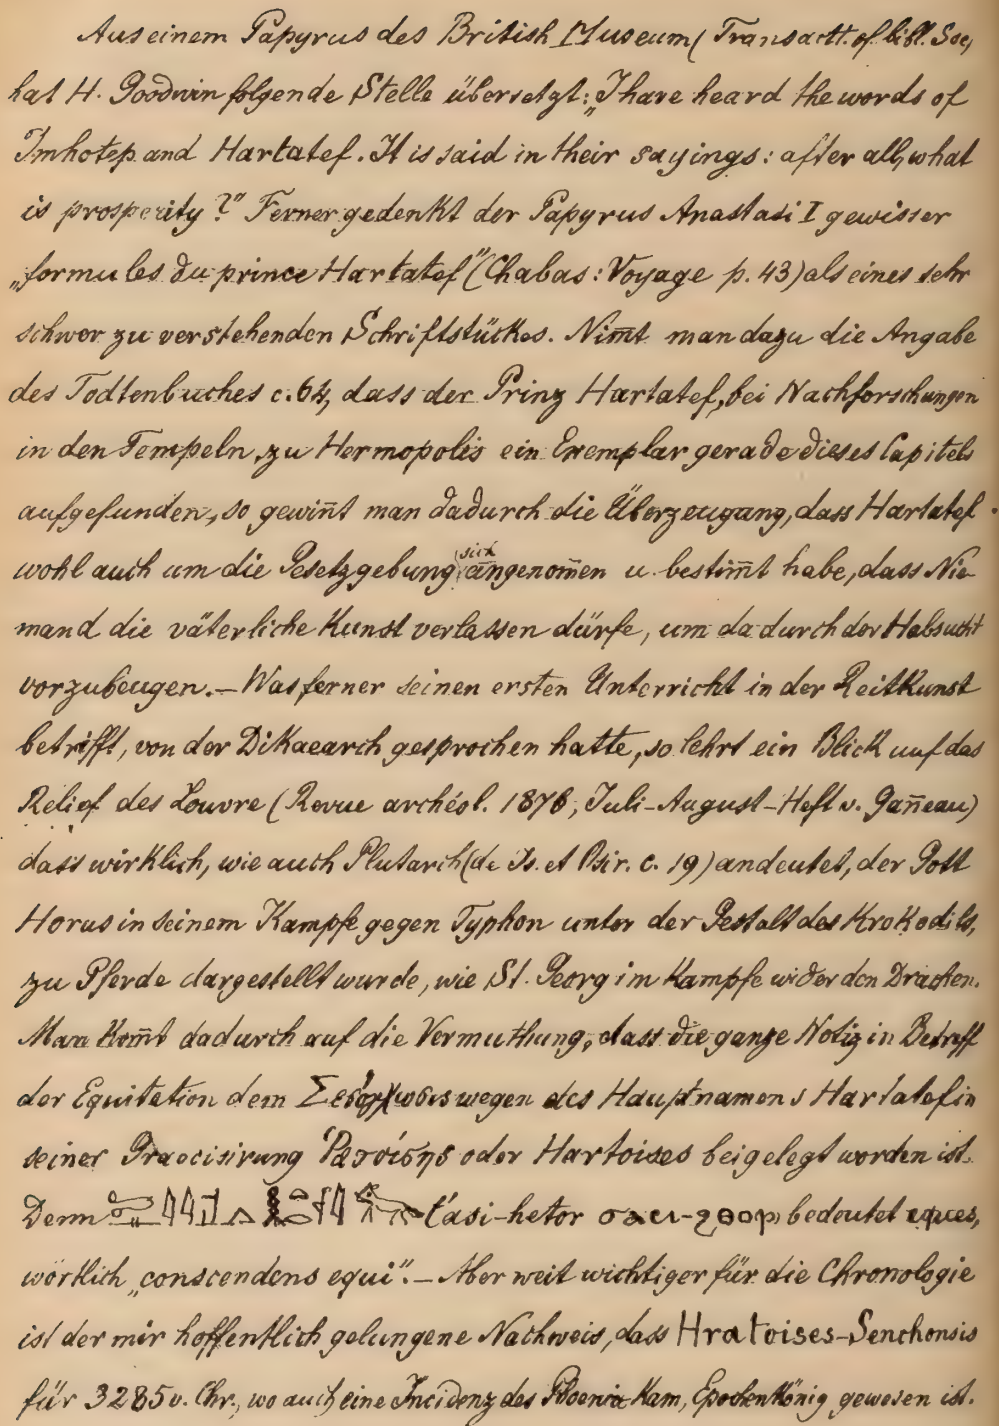 Aus einem Papyrus des British Museum (Transactt. of bibl. Soc,
hat H. Goodwin folgende Stelle übersetzt: „I have heard the words of
Imhotep and Hartatef. It is said in their sayings: after all, what
is prosperity?" Ferner gedenkt der Papyrus Anastasi I gewisser
„formules du prince Hartatef" (Chabas: Voyage p. 43) als eines sehr
schwer zu verstehenden Schriftstückes. Nim̄t man dazu die Angabe
des Todtenbuches c. 64, dass der Prinz Hartatef, bei Nachforschungen
in den Tempeln, zu Hermopolis ein Exemplar gerade dieses Capitels
aufgefunden, so gewin̄t man dadurch die Überzeugung, dass Hartatef
wohl auch um die Gesetzgebung sich angenom̄en u. bestim̄t habe, dass Nie-
mand die väterliche Kunst verlassen dürfe, um dadurch der Habsucht
vorzubeugen. — Was ferner seinen ersten Unterricht in der Reitkunst
betrifft, von der Dikaearch gesprochen hatte, so lehrt ein Blick auf das
Relief des Louvre (Revue archéol. 1876, Juli-August-Heft v. Gan̄eau)
dass wirklich, wie auch Plutarch (de Is. et Osir. c. 19) andeutet, der Gott
Horus in seinem Kampfe gegen Typhon unter der Gestalt des Krokodils,
zu Pferde dargestellt wurde, wie St. Georg im Kampfe wider den Drachen.
Man kom̄t dadurch auf die Vermuthung, dass die ganze Notiz in Betreff
der Equitation dem wegen des Hauptnamens Hartatef in
seiner Praecisirung oder Hartoises beigelegt worden ist.
Denn t'asi-hetor ϭⲁⲥⲓ-ϩⲑⲟⲣ bedeutet eques,
wörtlich „conscendens equi". — Aber weit wichtiger für die Chronologie
ist der mir hoffentlich gelungene Nachweis, dass Hratoises-Senchonsis
für 3285 v. Chr., wo auch eine Incidenz des Phoenix kam, Epochenkönig gewesen ist.